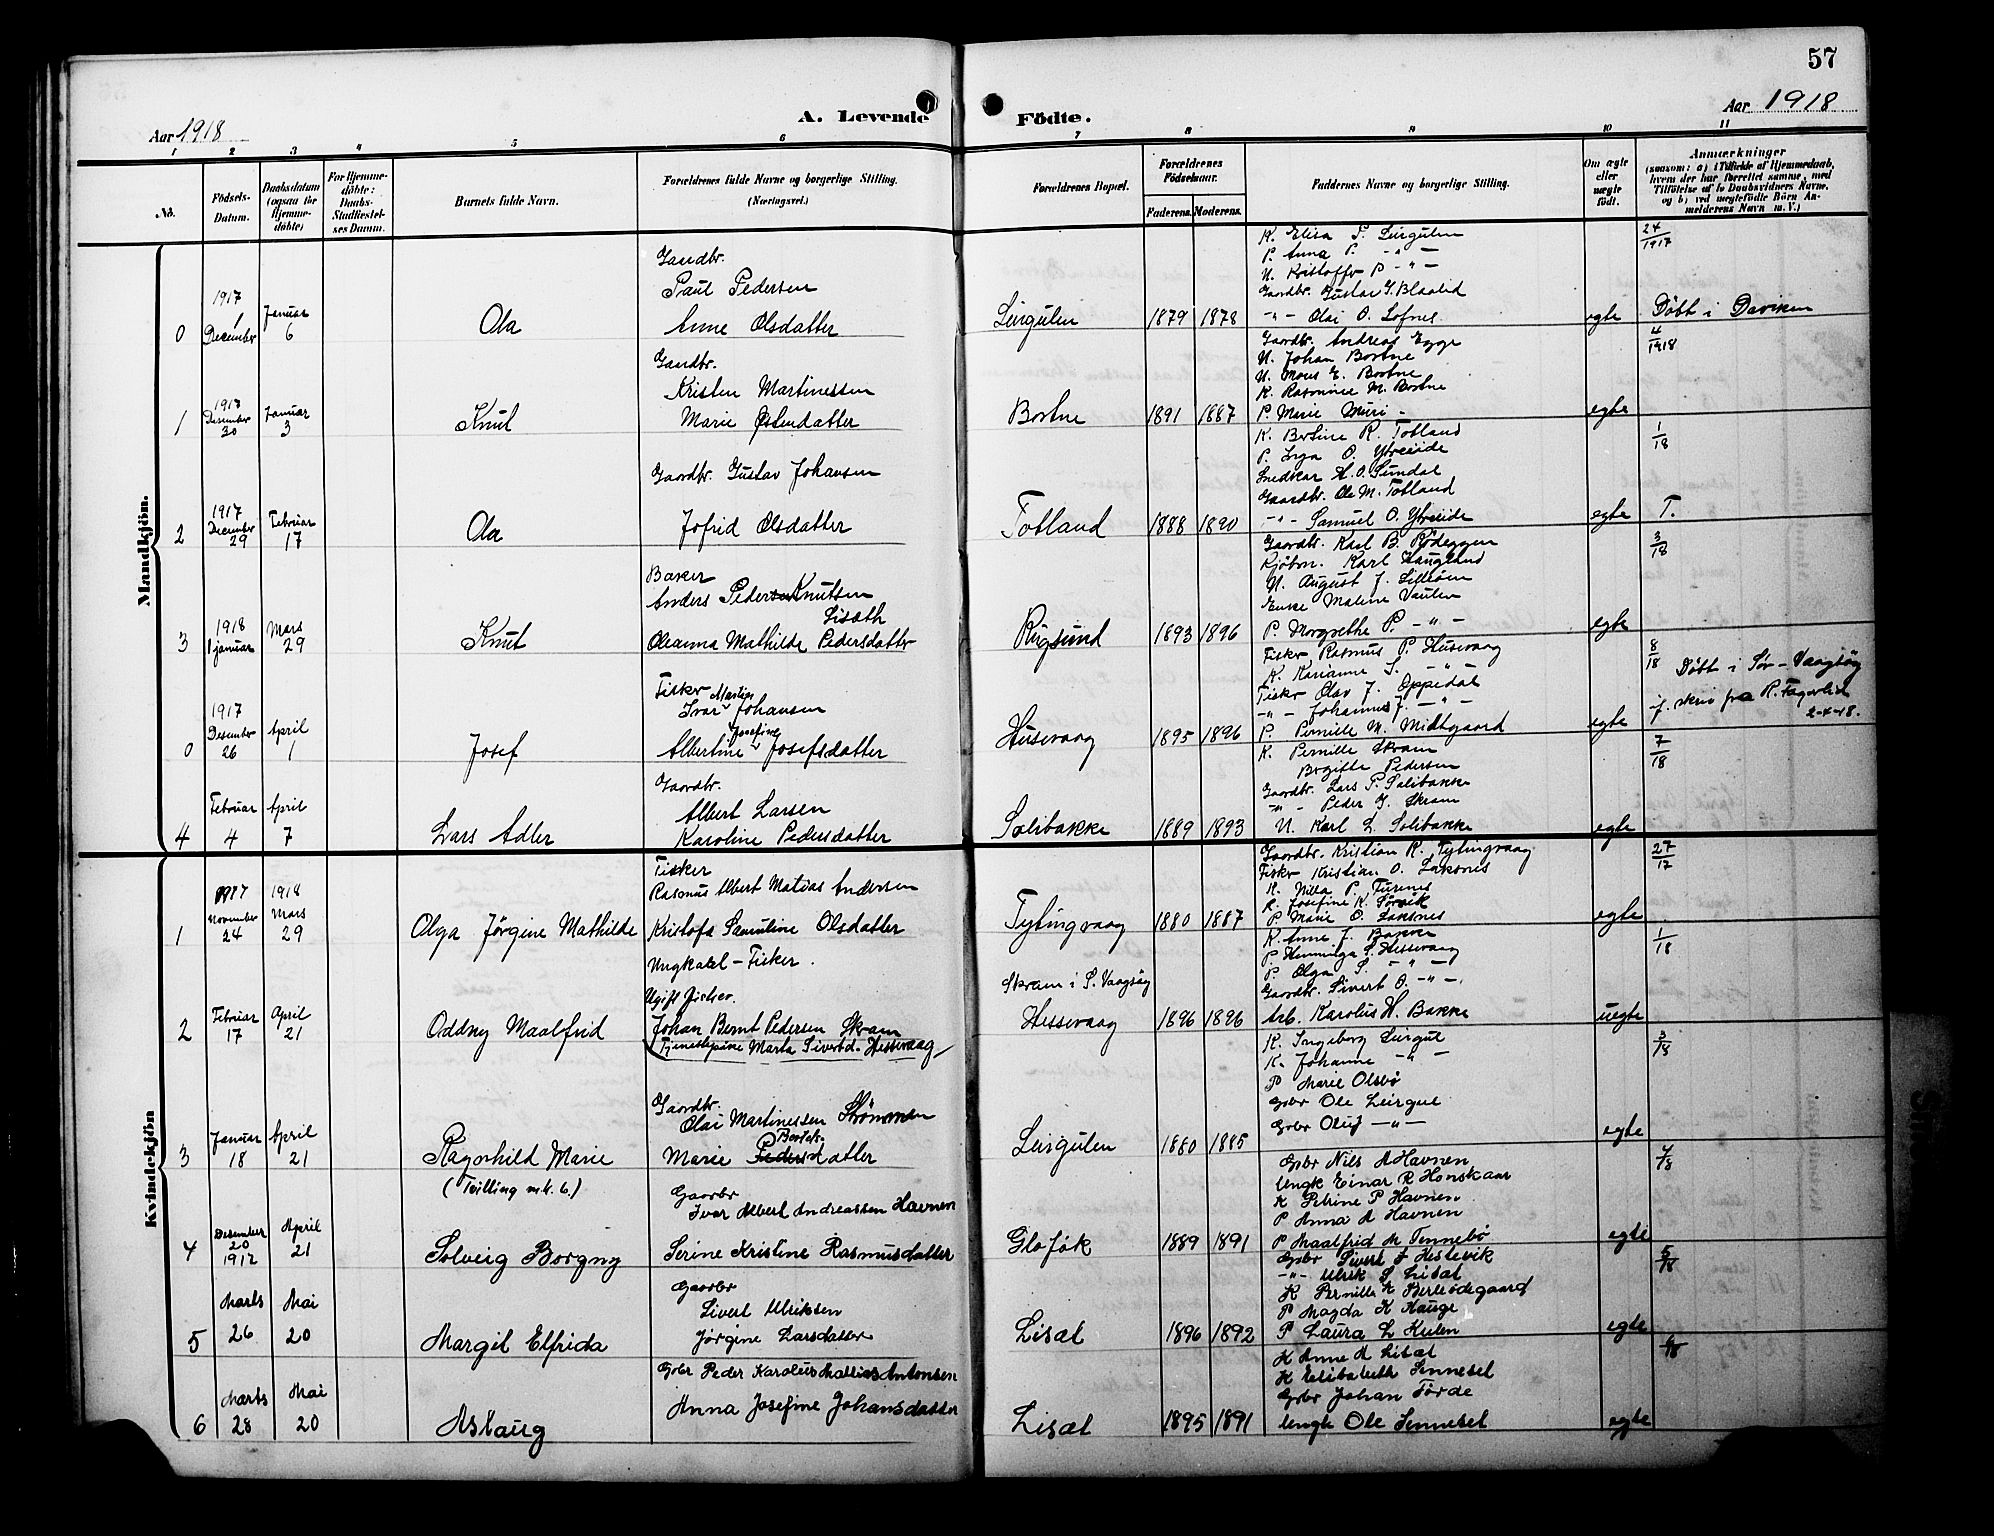 57
Aar 1918
A. Levende Födte.
Aar 1918
1 2 3 4 5 6 7 8 9 10 11
No.
Födsels-
Datum.
Daabsdatum
(ogsaa for
Hjemme-
döbte)
For Hjemme-
döbte:
Daabs-
Stadfæstel-
ses Datum.
Barnets fulde Navn.
Forældrenes fulde Navne og borgerlige Stilling.
(Næringsvei.)
Forældrenes Bopæl.
Forældrenes
Födselsaar.
Faderens. Moderens.
Faddernes Navne og borgerlige Stilling.
Om ægte
eller
uægte
født.
Anmærkninger
(saasom: a) i Tilfælde af Hjemmedaab,
hvem der har forrettet samme, med
Tilföielse af to Daabsvidners Navne,
og b) ved uægtefödte Börn An-
melderens Navn m. V.)
Mandkjön.
0
1917
December
Januar
6
Ola
Gaardbr.
Paul Pedersen
Anne Olsdatter
Leirgulen
1879 1878
K. Elisa P. Leirgulen
P. Anna P. -"-
U. Kristoffer P -"-
Gaardbr. Gustav G. Blaalid
-"- Olai O. Lofnes
egte
24/1917
Döbt i Daviken
1
December
30
Januar
3
Knut
Gaardbr.
Kristen Martinessen
Marie Østendatter
Bortne
1891 1887
Gaardbr. Andreas Egge
U. Johan Bortne
U. Mons E. Bortne
K. Rasmine M. Bortne
P. Marie Muri -
egte
4/1918
2
1917
December
29
Februar
17
Ola
Gaardbr. Gustav Johansen
Jofrid Olsdatter
Totland
1888 1890
K. Bertine R. Totland
P. Inga O. Ytreeide
Snedker H. O. Sundal
Gaardbr. Ole M. Totland
-"- Samuel O. Ytreeide
egte
1/18
T.
3
1918
1 januar
Mars
29
Knut
Baker
Anders Pedersen Knutsen
Liseth
Oleanna Mathilde Pedersdatter
Rugsund
1893 1896
Gaardbr. Karl B. Rödeggen
Kjöbm. Karl Haugland
U. August J. Lillröen
Enke Maline Vaulen
P. Margrethe P. -"-
egte
3/18
0
1917
Desember
26
April
1
Josef
Fisker
Martin
Ivar Johansen
Josefine
Albertine Josefsdatter
Husevaag
1895 1896
Fisker Rasmus P. Husevaag
K. Karianne S. -"-
Fisker Olav J. Oppedal
-"- Johannes J. -"-
P. Pernille M. Midtgaard
egte
8/18
Döbt i Sör-Vaagsöy
f. skriv fra R. Fagerlid
2-4-18.
4
Februar
4
April
7
Lars Adler
Gaardbr.
Albert Larsen
Karoline Pedersdatter
Solibakke
1889 1893
K. Pernille Skram
Birgitte Pedersen
Gaardbr. Lars P. Solibakke
-"- Peder G. Skram
U. Karl L. Solibakke
egte
7/18
Kvindekjön
1
November
24
1918
Mars
29
Olga Jörgine Mathilde
Fisker
Rasmus Albert Matias Andersen
Kristofa Samuline Olsdatter
Tytingvaag
1880 1887
Gaardbr. Kristian R. Tytingvaag
Fisker Kristian O. Laksnes
K. Nilla P. Furenes
K. Josefine K. Sörvik
P. Marie O. Laksnes
egte
27/17
2
Februar
17
April
21
Oddny Maalfrid
Ungkarl - Fisker.
Ugift fisker.
Johan Bernt Pedersen Skram
Tjenestepike Marta Sivertd. Hessevaag
Skram i S. Vaagsöy
Hessevaag
1896 1896
K. Anne J. Bakke
P. Henninga S. Hessevaag
P. Olga S. -"-
Gaardbr. Sivert O. -"-
Arb. Karolus H. Bakke
uegte
1/18
3
Januar
18
April
21
Ragnhild Marie
(Tvilling m. k. 6.)
Gaardbr.
Olai Martinessen Strömmen
Marie Pedersdatter
Leirgulen
1880 1885
K. Ingeborg Leirgul
K. Johanne -"-
P Marie Olsbö
Gbr Ole Leirgul
Gbr Oluf -"-
egte
3/18
4
Desember
20
1917
April
21
Solveig Borgny
Gaarbr
Ivar Albert Andreassen Havnen
Serine Kristine Rasmusdatter
1889 1891
Gbr Nils A Havnen
Ungk Einar R Honskaar
K Petrine P Havnen
P Anna A Havnen
P Maalfrid M Tennebö
egte
5
Marts
26
Mai
20
Margit Elfrida
Gaarbr
Sivert Ulriksen
Jørgine Larsdatter
Lisæt
1896 1892
Gbr Sivert J Hestevik
-"- Ulrik S Lisæt
K Pernille K Berleödegaard
P Magda K Hauge
P Laura L Kulen
egte
5/18
6
Marts
28
Mai
20
Aslaug
Gbr Peder Karolus Mattias Antonsen
Anna Josefine Johansdatter
Lisæt
1895 1891
K Anne A Lisæt
K Elisabeth Sennesel
Gbr Johan Förde
Ungk Ole Sennesel
egte